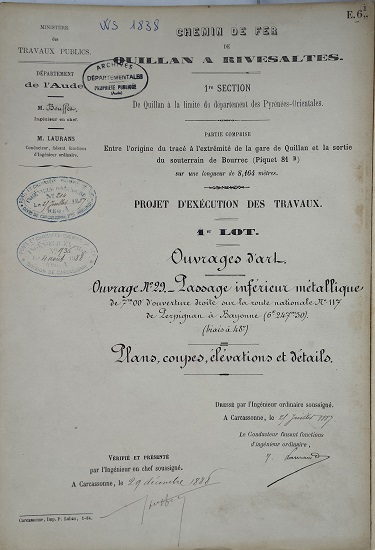 WS 1838
E.6.1
MINISTÈRE
des
TRAVAUX PUBLICS.
DÉPARTEMENT
de l'Aude
M. Bouffet
Ingénieur en chef.
M. LAURANS
Conducteur, faisant fonctions
d'Ingénieur ordinaire.
ARCHIVES
DÉPARTEMENTALES
PROPRIÉTÉ PUBLIQUE
(Aude)
CHEMIN DE FER
DE
QUILLAN A RIVESALTES.
1re SECTION
De Quillan à la limite du département des Pyrénées-Orientales.
PARTIE COMPRISE
Entre l'origine du tracé à l'extrémité de la gare de Quillan et la sortie
du souterrain de Bourrec (Piquet 81 B)
sur une longueur de 8,164 mètres.
PROJET D'EXÉCUTION DES TRAVAUX.
1er LOT.
Ouvrages d'art.
Ouvrage No 29. Passage inférieur métallique
de 7m00 d'ouverture droite sur la route nationale No 117
de Perpignan à Bayonne (6k 247m50).
(biais à 48°)
Plans, coupes, élévations et détails.
DRESSÉ par l'Ingénieur ordinaire soussigné.
A Carcassonne, le 25 juillet 1887
Le Conducteur faisant fonctions
d'ingénieur ordinaire,
VÉRIFIÉ ET PRÉSENTÉ
par l'Ingénieur en chef soussigné.
A Carcassonne, le 29 décembre 1888
Carcassonne, Imp. P. Labau,